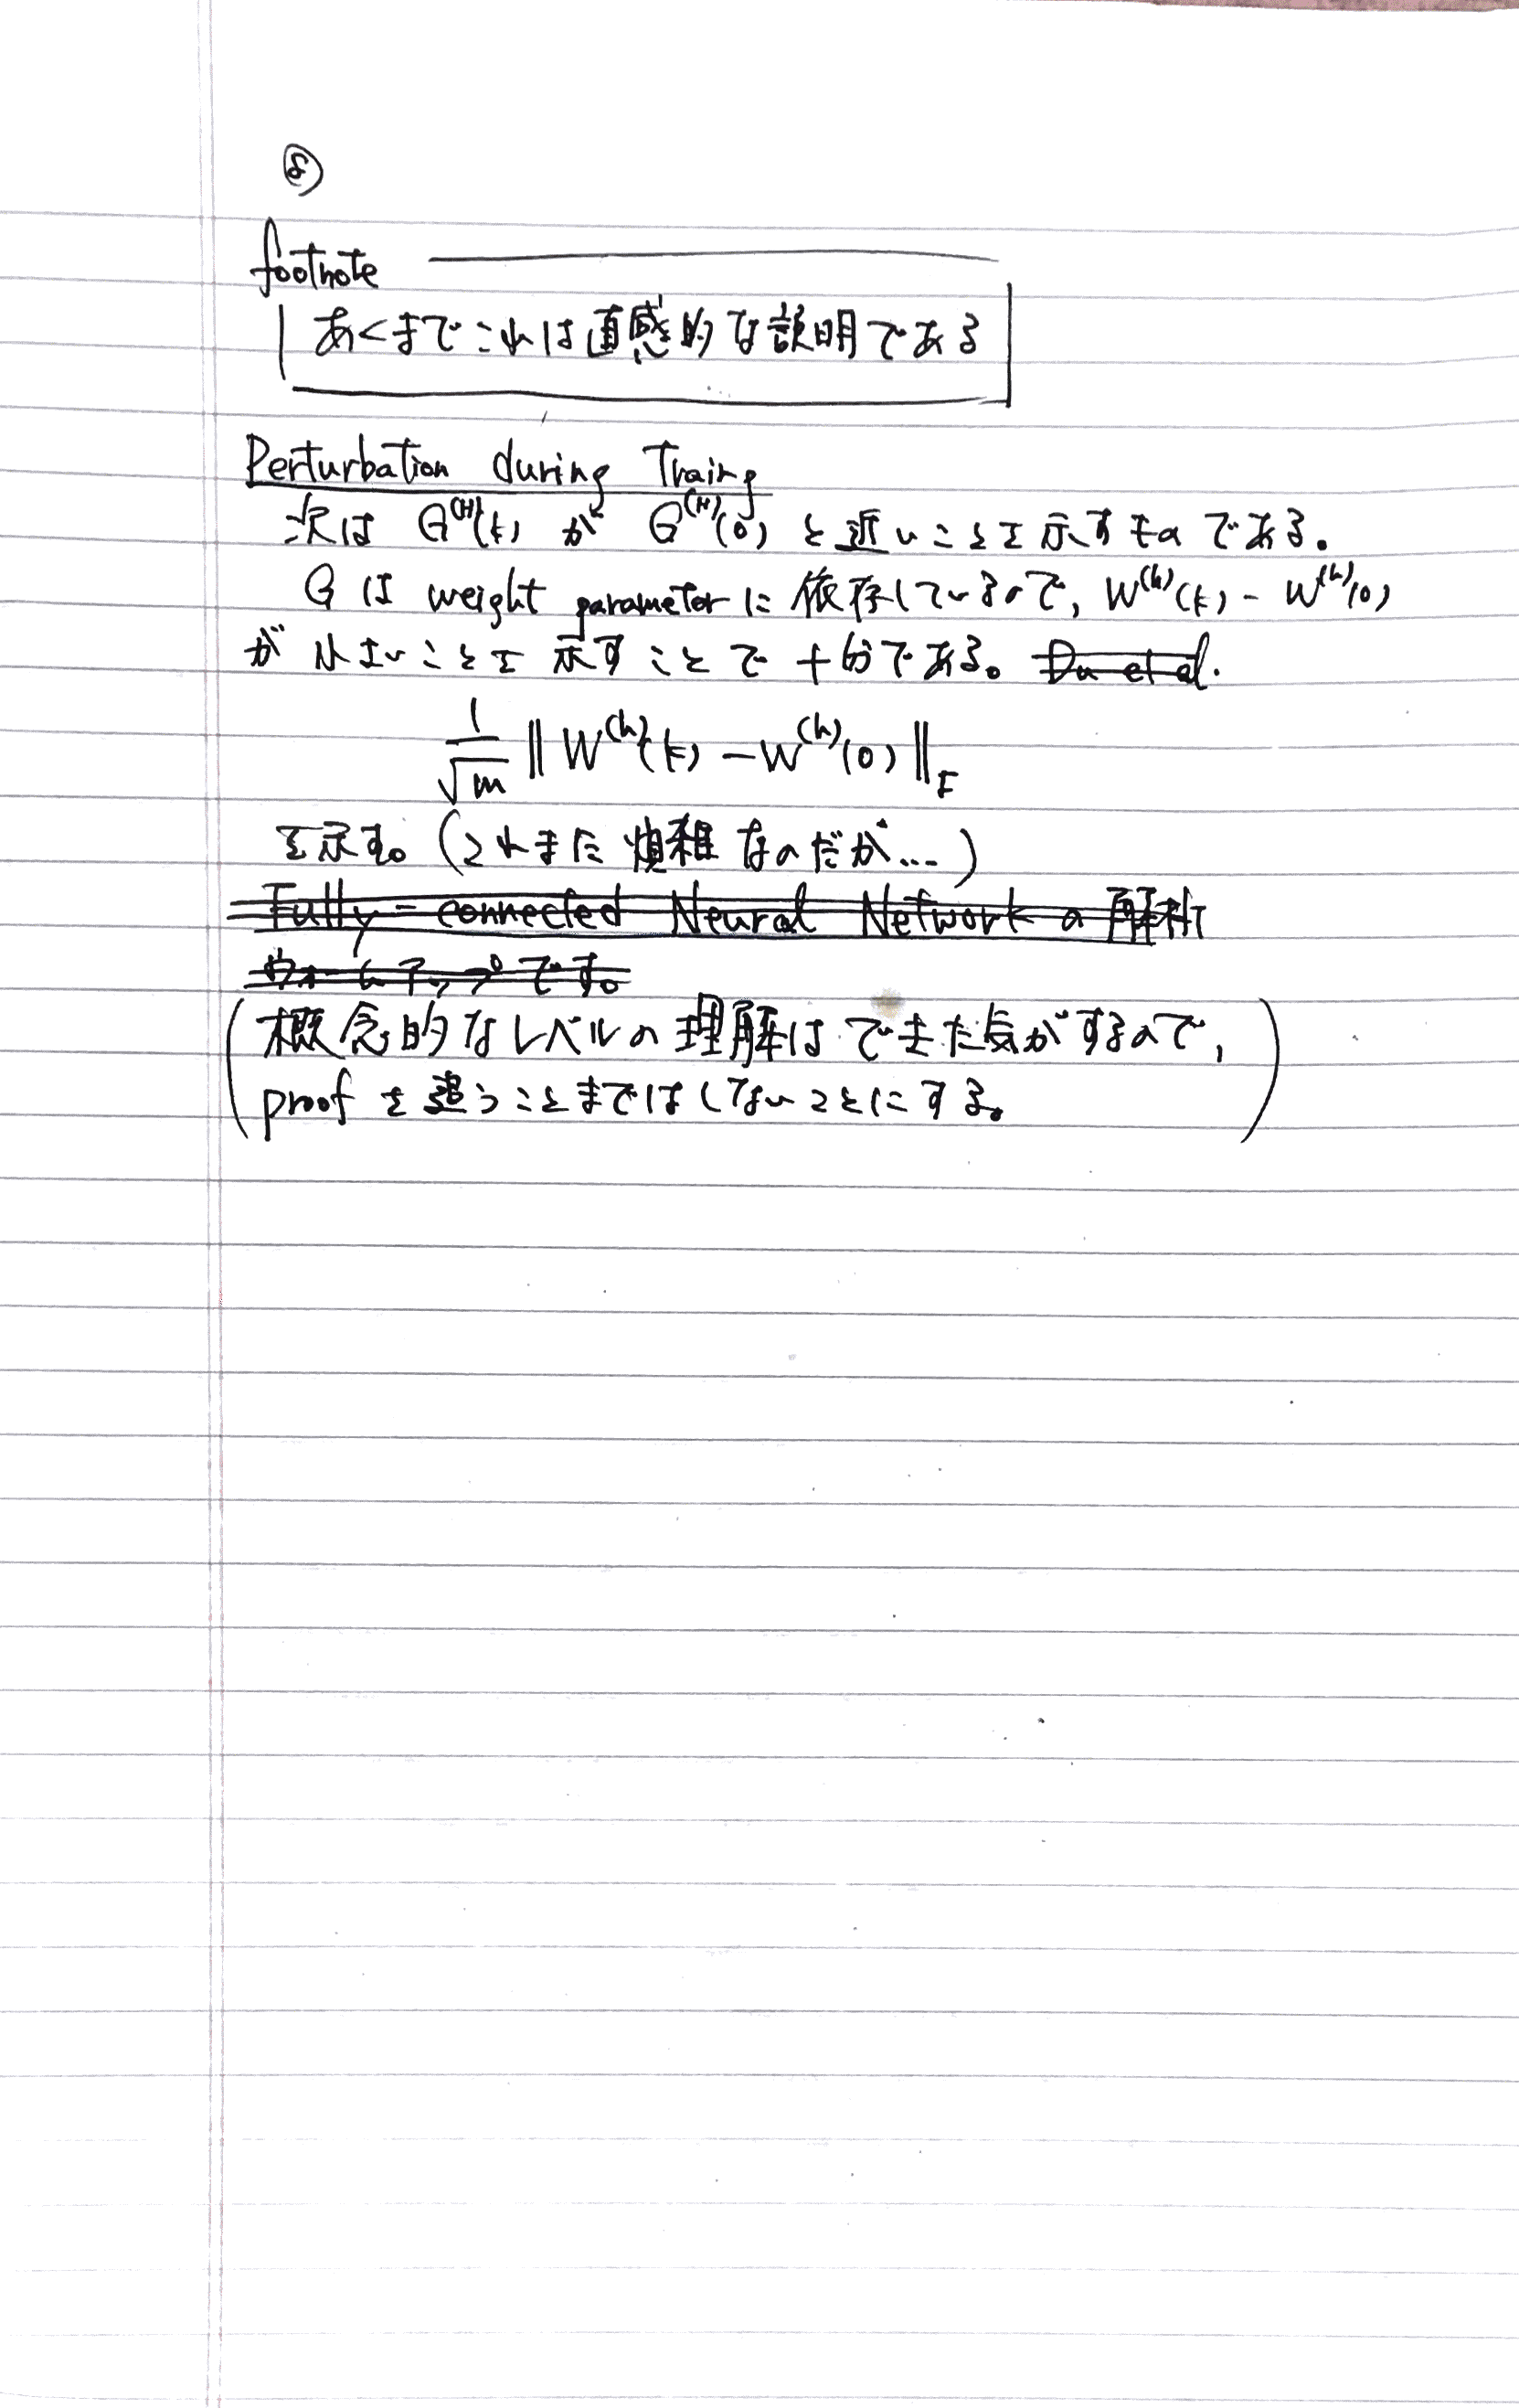 ⑧
footnote
あくまでこれは直感的な説明である
Perturbation during Traing
次は G^(H)(k) が G^(H)(0) と近いことを示すものである.
G は weight parameter に依存しているので, W^(h)(k) - W^(h)(0)
が小さいことを示すことで十分である。 Du et al.
1/√m ‖ W^(h)(k) - W^(h)(0) ‖_F
を示す。(これまた煩雑なのだが...)
Fully-connected Neural Network の解析
ウォームアップです。
(概念的なレベルの理解はできた気がするので,
proof を追うことまではしないことにする。)